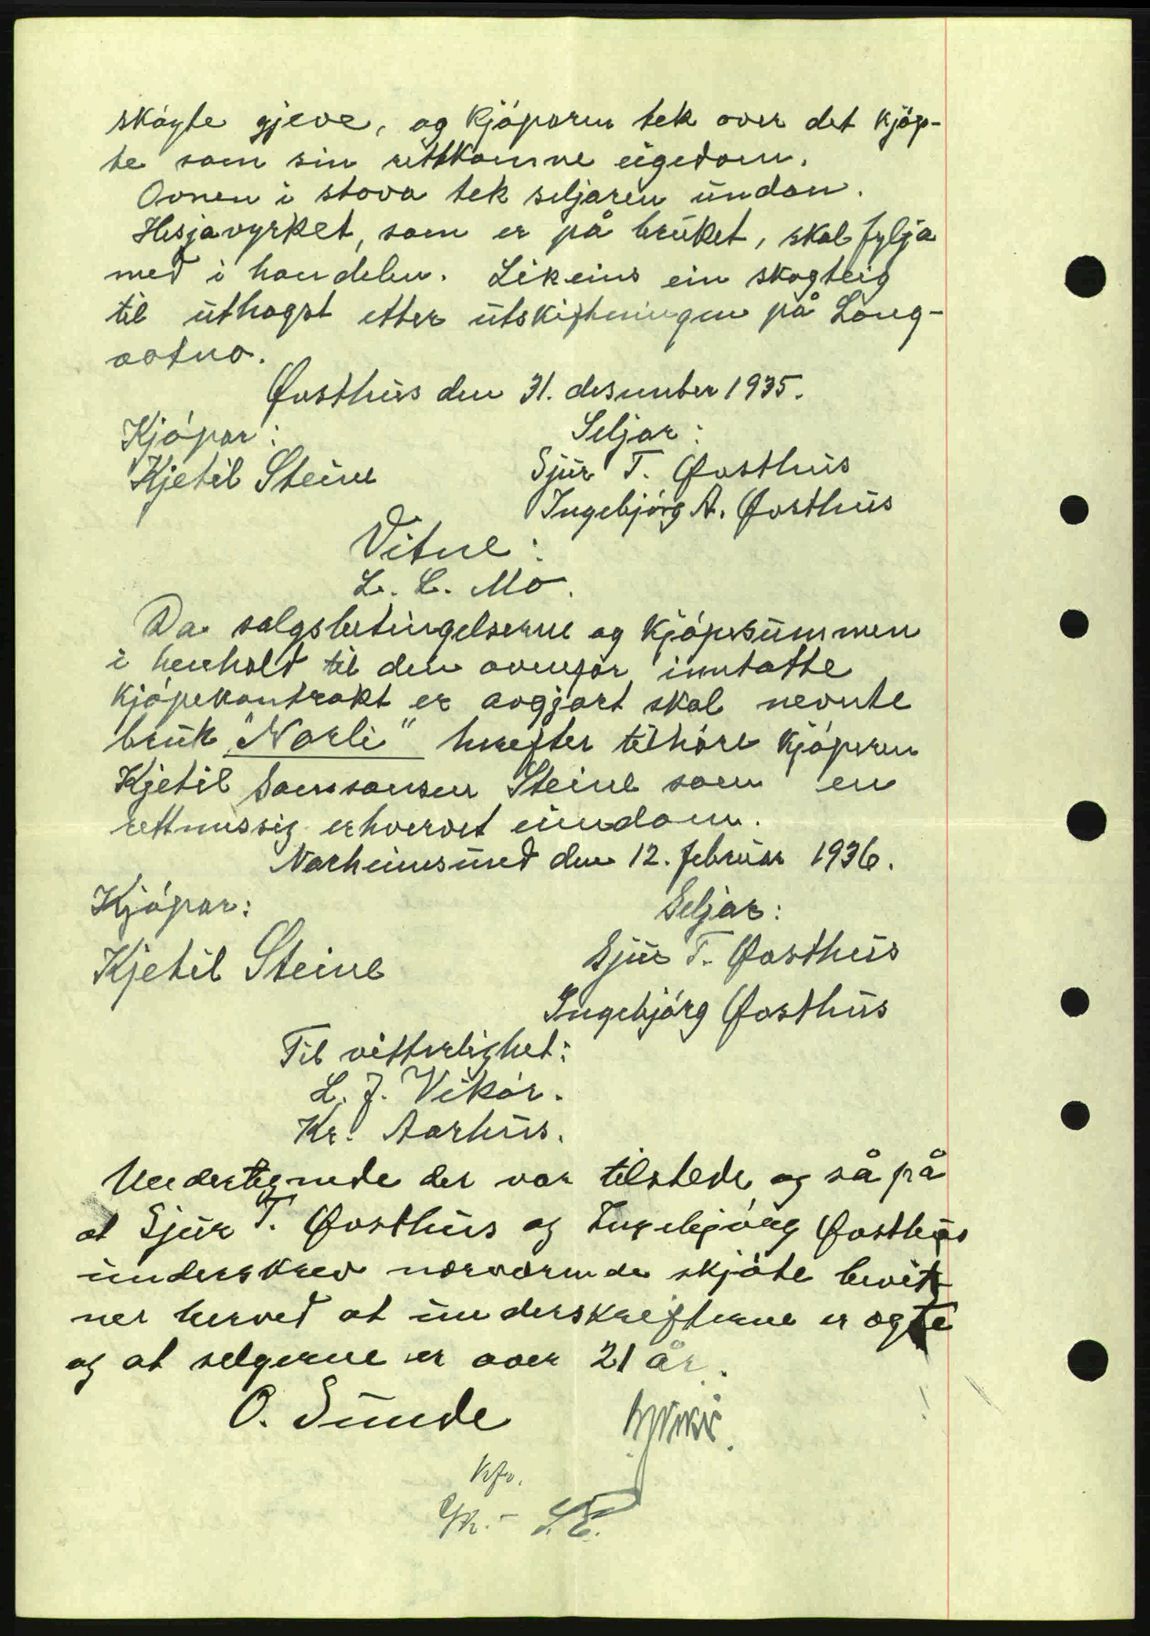 skøyte gjeve, og kjøparen tek over det kjøp-
te som sin rettkomne eigedom.
Ovnen i stova tek seljaren undan.
Hesjavyrket, som er på bruket, skal fylja
med i handelen. Likeins ein skogteig
til uthogst etter utskiftningen på Lang-
øotno.
Øvsthus den 31. desember 1935.
Kjøpar: Seljar:
Kjetil Steine Sjur T. Øvsthus
Ingebjørg A. Øvsthus
Vitne:
L. L. Mo.
Da salgsbetingelserne og kjøpesummen
i henhold til den ovenfor inntatte
kjøpekontrakt er avgjort skal nevnte
bruk "Norli" herefter tilhøre kjøperen
Kjetil Samsonsen Steine som en
rettmessig erhvervet eiendom.
Norheimsund den 12. februar 1936.
Kjøpar: Seljar:
Kjetil Steine Sjur T. Øvsthus
Ingebjørg Øvsthus
Til vitterlighet:
L. J. Vikør.
Kr. Aarhus.
Undertegnede der var tilstede og så på
at Sjur T. Øvsthus og Ingebjørg Øvsthus
underskrev nærværende skjøte bevit-
ner herved at underskrifterne er ægte
og at selgerne er over 21 år.
O. Sunde
Kfr.